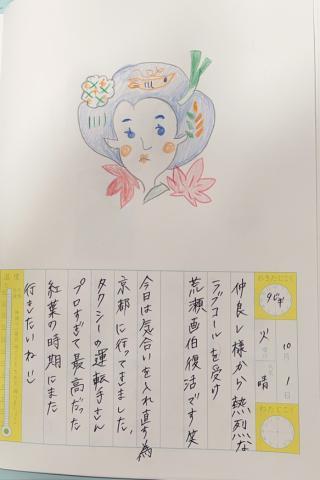 おきたじこく
9じ半
10月1日
火
晴
ねたじこく
仲良し様から熱烈な
ラブコールを受け
荒瀬画伯復活です笑
今日は気合いを入れ直す為
京都に行ってきました。
タクシーの運転手さん
プロすぎて最高だった
紅葉の時期にまた
行きたいね!!